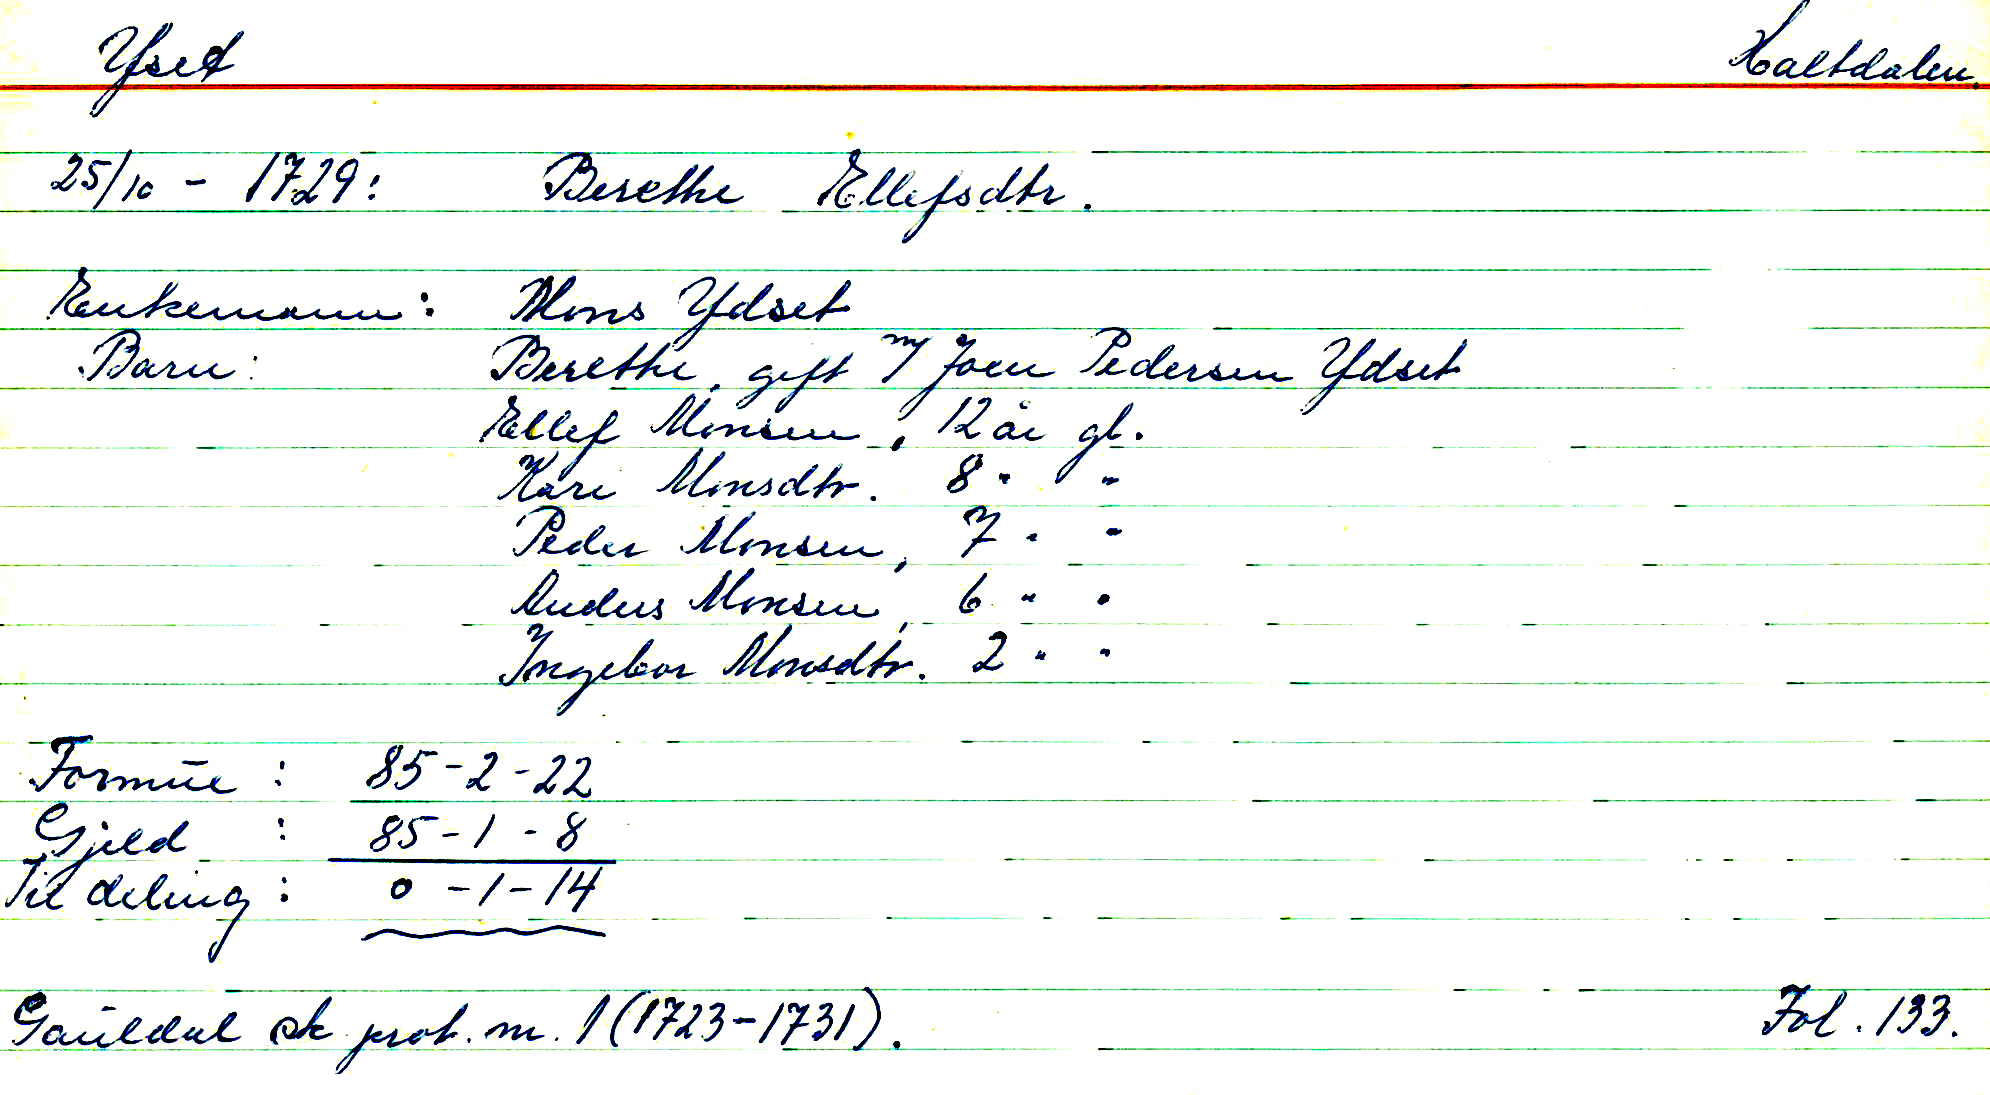 Yset Haltdalen.
25/10 - 1729: Berethe Ellefsdtr.
Enkemann: Mons Ydset
Barn: Berethe, gift m/ Joen Pedersen Ydset
Ellef Monsen, 12 år gl.
Kari Monsdtr. 8 " "
Peder Monsen, 7 " "
Anders Monsen, 6 " "
Ingebor Monsdtr. 2 " "
Formue : 85 - 2 - 22
Gjeld : 85 - 1 - 8
Til deling : 0 - 1 - 14
Gauldal sk prot. nr. 1 (1723-1731). Fol. 133.